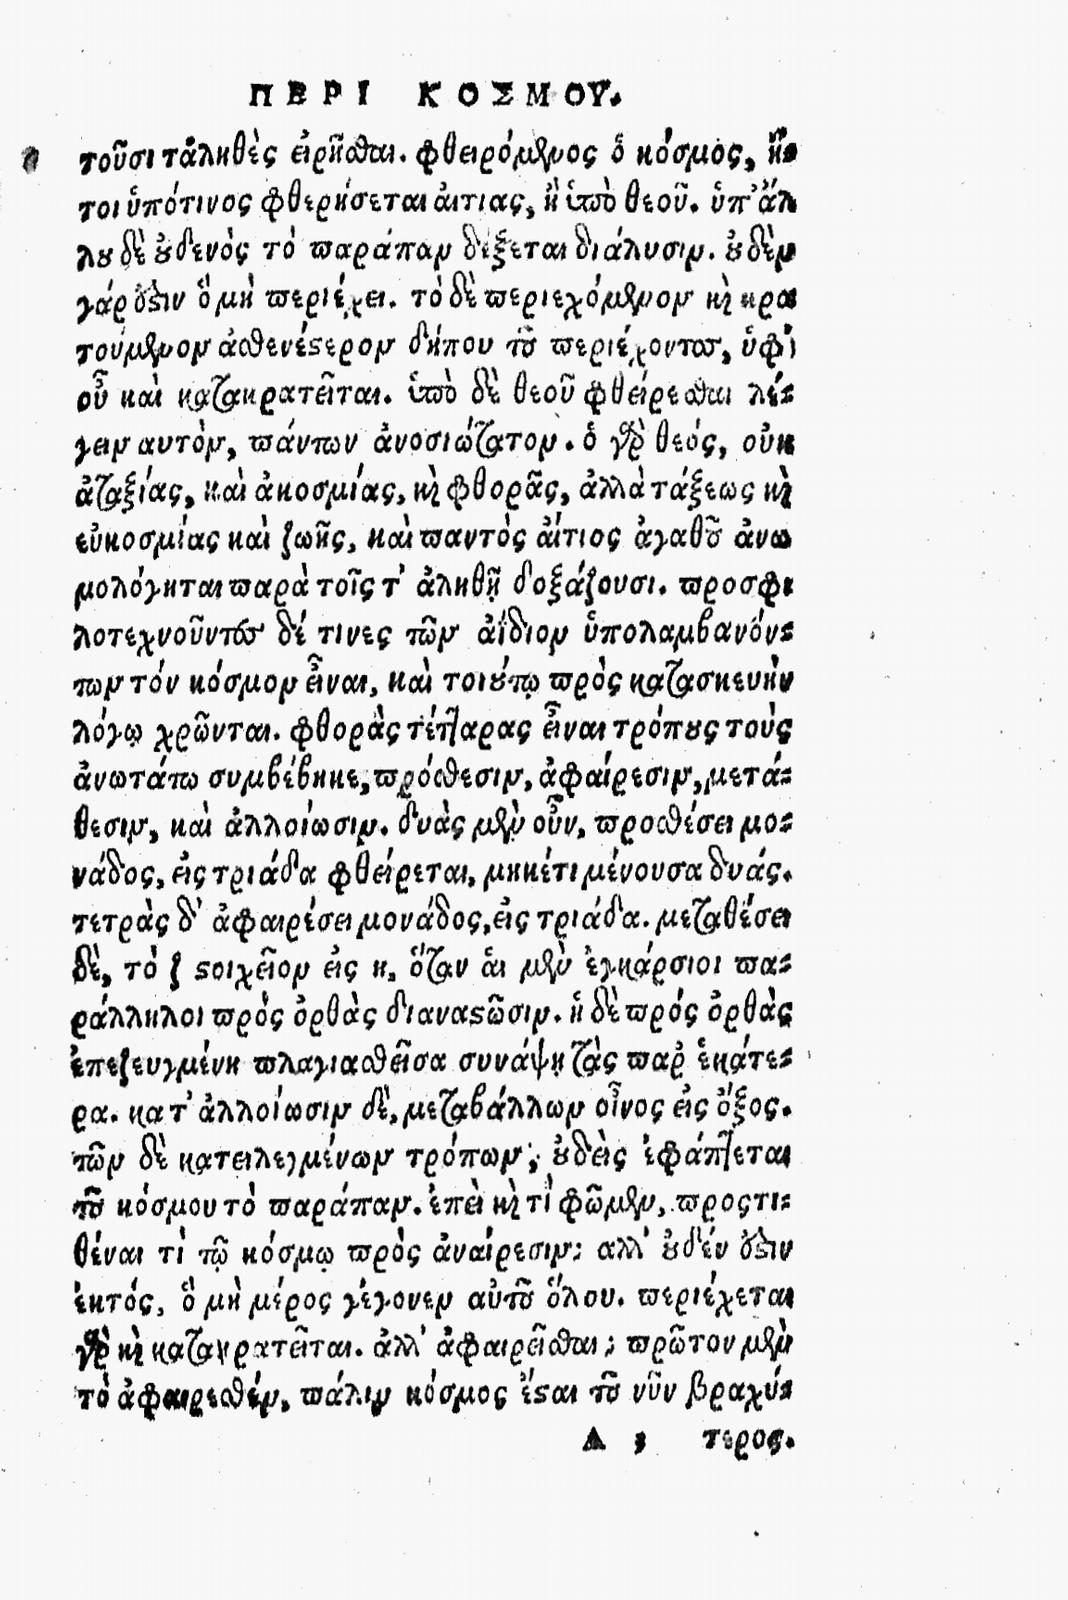 ΠΕΡΙ ΚΟΣΜΟΥ.
τοῦσι τἀληθὲς εἰρῆσθαι. φθειρόμενος ὁ κόσμος, ἤ-
τοι ὑπό τινος φθερήσεται αἰτίας, ἢ ὑπὸ θεοῦ. ὑπ' ἄλ
λου δὲ οὐδενὸς τὸ παράπαν δέξεται διάλυσιν. οὐδὲν
γάρ ἐστιν ὃ μὴ περιέχει. τὸ δὲ περιεχόμενον καὶ κρα
τούμενον ἀσθενέστερον δήπου τοῦ περιέχοντος, ὑφ'
οὗ καὶ κατακρατεῖται. ὑπὸ δὲ θεοῦ φθείρεσθαι λέ-
γειν αυτὸν, πάντων ἀνοσιώτατον. ὁ γὰρ θεός, οὐκ
ἀταξίας, καὶ ἀκοσμίας, καὶ φθορᾶς, ἀλλὰ τάξεως καὶ
εὐκοσμίας καὶ ζωῆς, καὶ παντὸς αἴτιος ἀγαθοῦ ἀνω
μολόγηται παρὰ τοῖς τ' ἀληθῆ δοξάζουσι. προσφι
λοτεχνοῦντος δέ τινες τῶν ἀΐδιον ὑπολαμβανόν-
των τόν κόσμον εἶναι, καὶ τοιούτῳ πρὸς κατασκευὴν
λόγῳ χρῶνται. φθορὰς τέτταρας εἶναι τρόπους τοὺς
ἀνωτάτω συμβέβηκε, πρόσθεσιν, ἀφαίρεσιν, μετά-
θεσιν, καὶ ἀλλοίωσιν. δυὰς μὲν οὖν, προσθέσει μο-
νάδος, εἰς τριάδα φθείρεται, μηκέτι μένουσα δυάς.
τετρὰς δ' ἀφαιρέσει μονάδος, εἰς τριάδα. μεταθέσει
δὲ, τὸ ζ στοιχεῖον εἰς η, ὅταν αἱ μὲν ἐγκάρσιοι πα-
ράλληλοι πρὸς ὀρθὰς διαναστῶσιν. ἡ δὲ πρός ὀρθὰς
ἐπεζευγμένη πλαγιασθεῖσα συνάψῃ τὰς παρ' ἑκάτε-
ρα. κατ' ἀλλοίωσιν δὲ, μεταβάλλων οἶνος εἰς ὄξος.
τῶν δὲ κατειλεγμένων τρόπων, οὐδεὶς ἐφάπτεται
τοῦ κόσμου τὸ παράπαν. ἐπεὶ καὶ τί φῶμεν, προςτι-
θέναι τὶ τῷ κόσμῳ πρὸς ἀναίρεσιν; αλλ' οὐδέν ἐστιν
ἐκτός, ὃ μὴ μέρος γέγονεν αὐτοῦ ὅλου. περιέχεται
γὰρ καὶ κατακρατεῖται. ἀλλ' ἀφαιρεῖσθαι; πρῶτον μὲν
τὸ ἀφαιρεθέν, πάλιν κόσμος ἔσται τοῦ νῦν βραχύ-
Α 3 τερος.